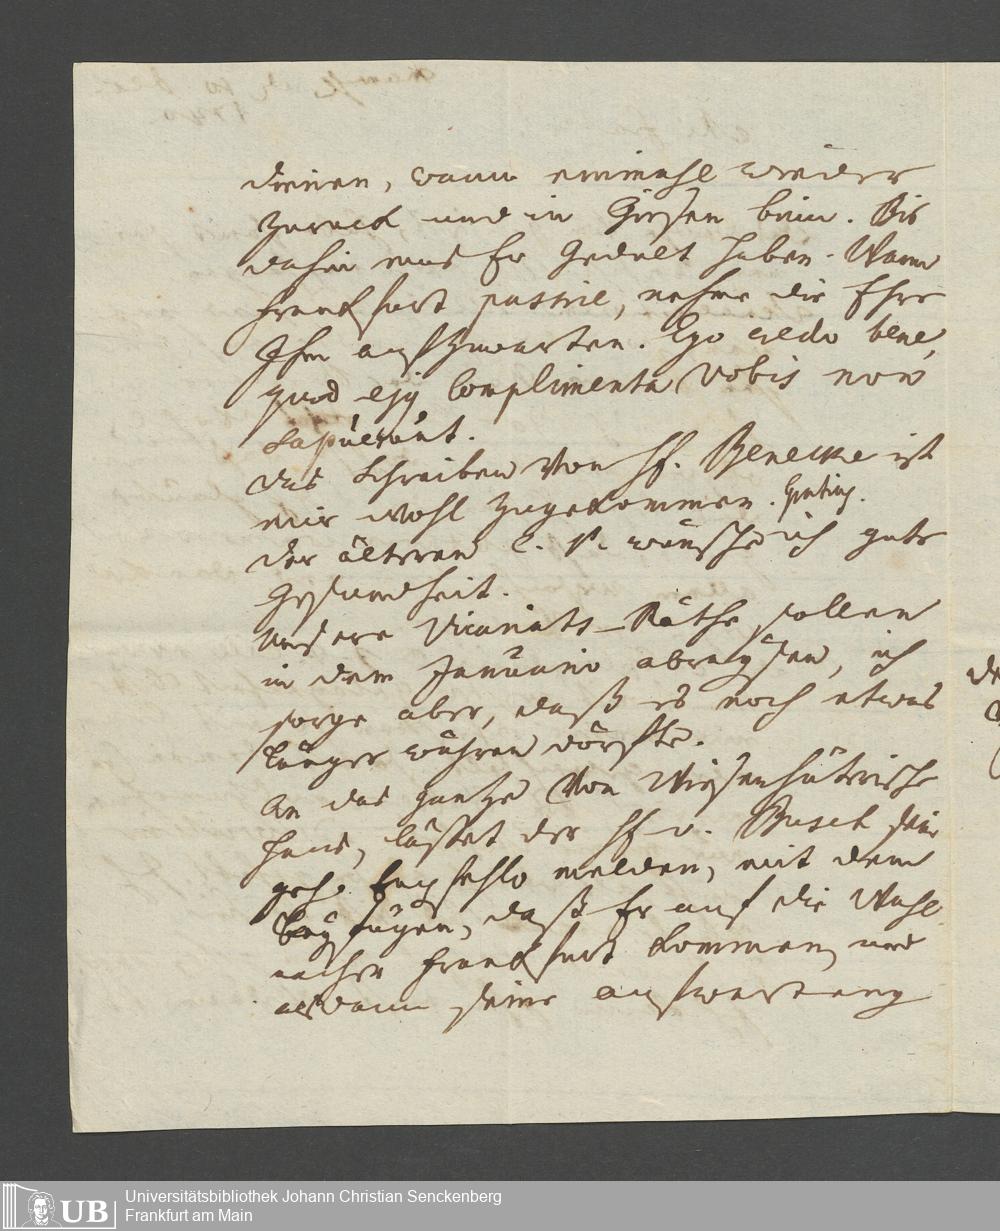 dienen, wann einmahl wieder
zuruck und in Giesen bin. Bis
dahin mus Er Gedult haben. Wann
Franckfurt passire, nehme die Ehre
Ihm aufzuwarten. Ego credo bene,
quod ejq Complimenta Vobis non
das Schreiben Von Hf. Benecke ist
mir wohl zugekommen.
der älteren wünsche ich gute
Gesundheit.
Unsere Vicariats-Räthe sollen
in dem Januario abreysen, ich
sorge aber, daß es noch etwas
länger währen dörffte.
An das gantze Von Wiesenhüterische
Haus, lässet der Hf v. Busch sein
geh. Empfehlo melden, mit dem
beyfügen, daß Er auf die Wahl
nacher Franckfurt kommen, und
alsdann seine aufwartung
Universitätsbibliothek Johann Christian Senckenberg
UB Frankfurt am Main